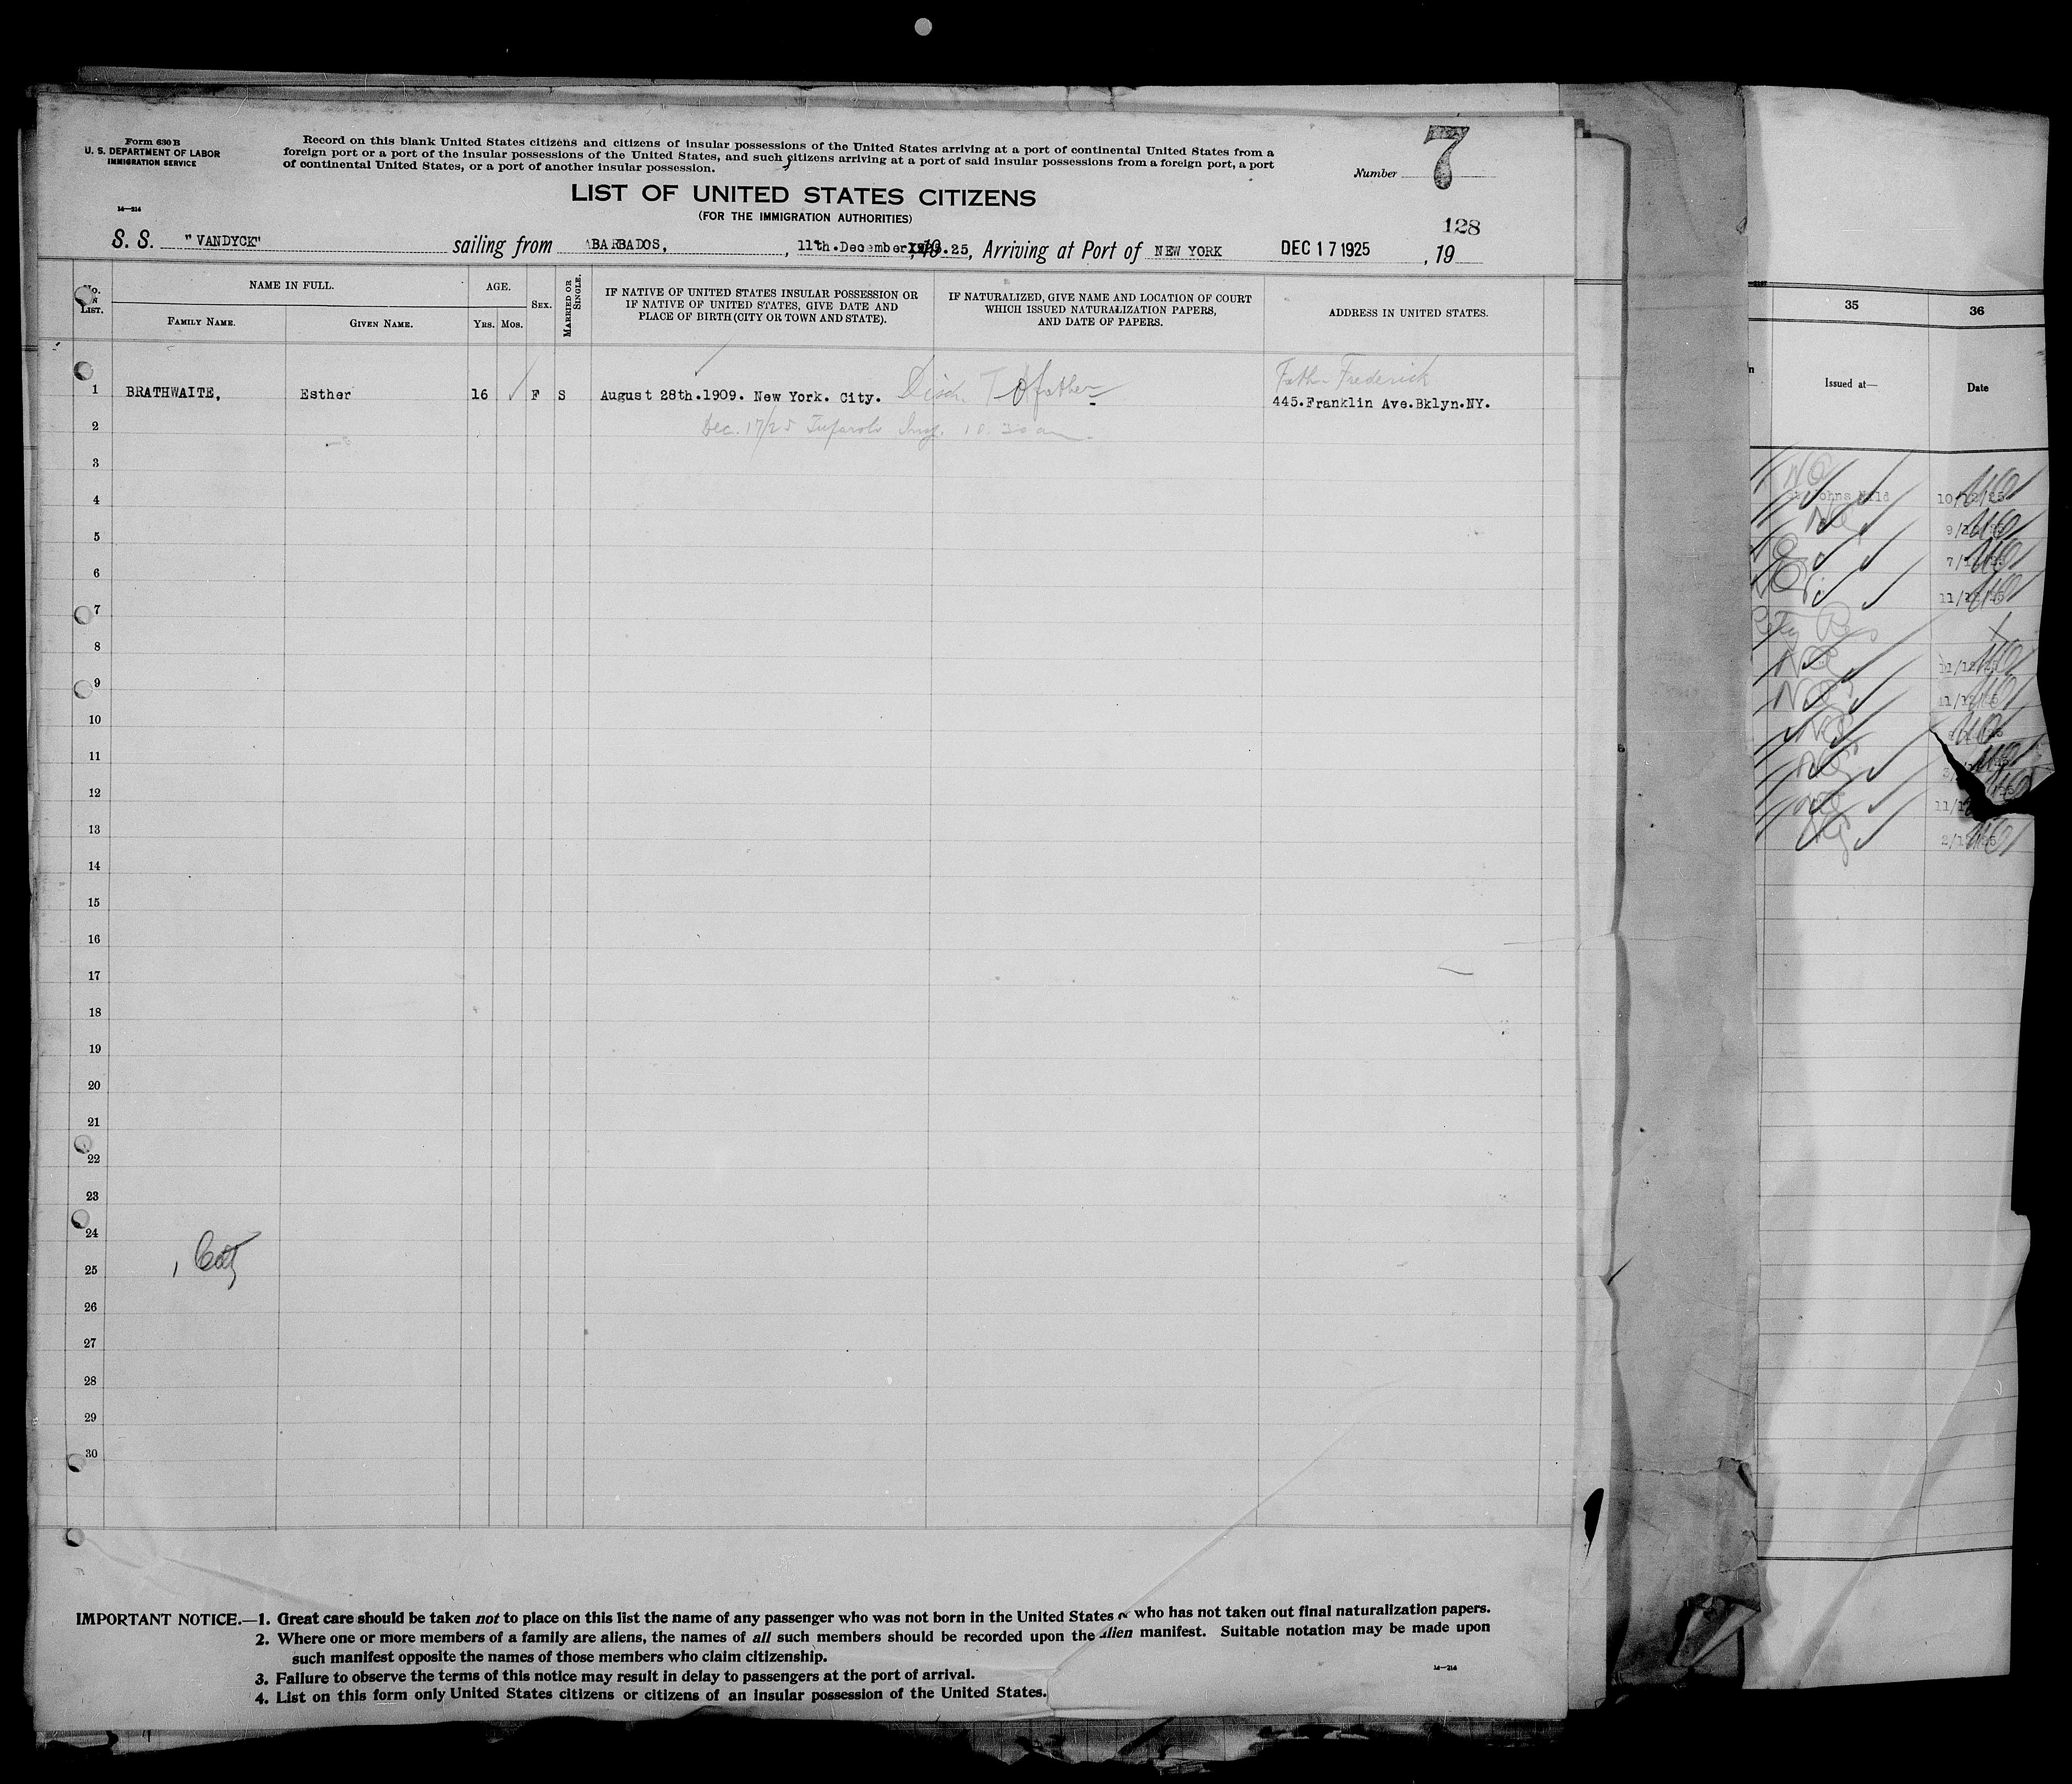 Form 630 B
U. S. DEPARTMENT OF LABOR
IMMIGRATION SERVICE
14—214
Record on this blank United States citizens and citizens of insular possessions of the United States arriving at a port of continental United States from a
foreign port or a port of the insular possessions of the United States, and such citizens arriving at a port of said insular possessions from a foreign port, a port
of continental United States, or a port of another insular possession.
Number 7
LIST OF UNITED STATES CITIZENS
(FOR THE IMMIGRATION AUTHORITIES)
128
S. S. "VANDYCK" sailing from BARBADOS, , 11th.December .25, Arriving at Port of NEW YORK DEC 17 1925 , 19
No. LIST.
NAME IN FULL.
FAMILY NAME.
GIVEN NAME.
AGE.
YRS. MOS.
SEX.
MARRIED OR SINGLE.
IF NATIVE OF UNITED STATES INSULAR POSSESSION OR
IF NATIVE OF UNITED STATES, GIVE DATE AND
PLACE OF BIRTH (CITY OR TOWN AND STATE).
IF NATURALIZED, GIVE NAME AND LOCATION OF COURT
WHICH ISSUED NATURALIZATION PAPERS,
AND DATE OF PAPERS.
ADDRESS IN UNITED STATES.
Fath. Frederick
1 BRATHWAITE, Esther 16 F S August 28th.1909. New York. City. Disch. To father 445.Franklin Ave.Bklyn.NY.
2 Dec. 17/25 Insp. 10.30 am
3
4
5
6
7
8
9
10
11
12
13
14
15
16
17
18
19
20
21
22
23
24
25
26
27
28
29
30
IMPORTANT NOTICE.—1. Great care should be taken not to place on this list the name of any passenger who was not born in the United States who has not taken out final naturalization papers.
2. Where one or more members of a family are aliens, the names of all such members should be recorded upon the alien manifest. Suitable notation may be made upon
such manifest opposite the names of those members who claim citizenship.
3. Failure to observe the terms of this notice may result in delay to passengers at the port of arrival.
4. List on this form only United States citizens or citizens of an insular possession of the United States.
14—214
35
36
Issued at—
Date